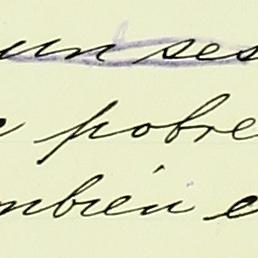 un ses
pobre
mbién e